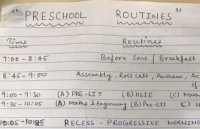 "PRESCHOOL ROUTINES"
Time Routines
7:00 - 8:45 Before Care / Breakfast
8:45 - 9:00 Assembly, Roll call, Anthem, Ac
of
9:00 - 9:30 (A) PRE-LIT (B) HSIE (C)
9:35 - 10:05 (A) Maths & Engineering (B) Pre-LIT (C)
10:05 - 10:25 RECESS - PROGRESSIVE MORNING